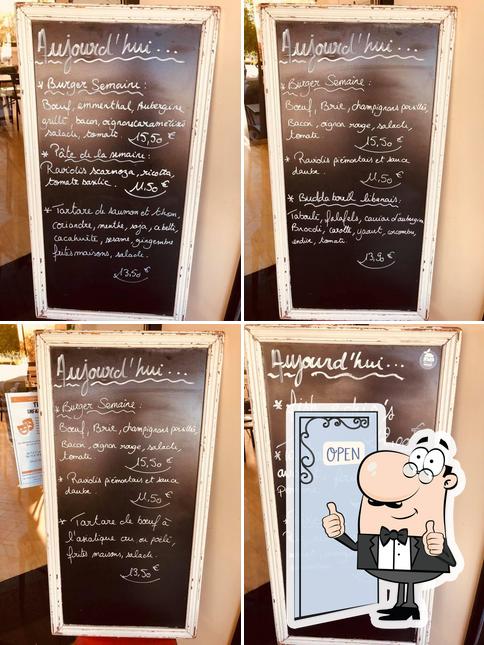 Aujourd'hui...
* Burger Semaine:
Bœuf, emmenthal, Aubergine
grillé, bacon, oignons caramélisés
salade, tomate.
15,50 €
* Pâte de la semaine:
Raviolis scarmoza, ricotta,
tomate basilic.
11,50 €
* Tartare de saumon et thon,
coriandre, menthe, soja, ciboul,
cacahuète, sesame, gingembre
frites maisons, salade.
13,50 €
Aujourd'hui...
* Burger Semaine:
Bœuf, Brie, champignons poellés
Bacon, oignon rouge, salade,
tomate.
15,50 €
* Raviolis piémontais et sauce
daube.
11,50 €
* Budda boul libanais:
Taboulé, falafels, caviar d'aubergine
Brocoli, carotte, yaourt, concombre,
endive, tomate.
13,50 €
Aujourd'hui...
* Burger Semaine:
Bœuf, Brie, champignons poellés
Bacon, oignon rouge, salade,
tomate.
15,50 €
* Raviolis piémontais et sauce
daube.
11,50 €
* Tartare de bœuf à
l'asiatique cru ou poelé,
frites maisons, salade.
13,50 €
Aujourd'hui...
OPEN